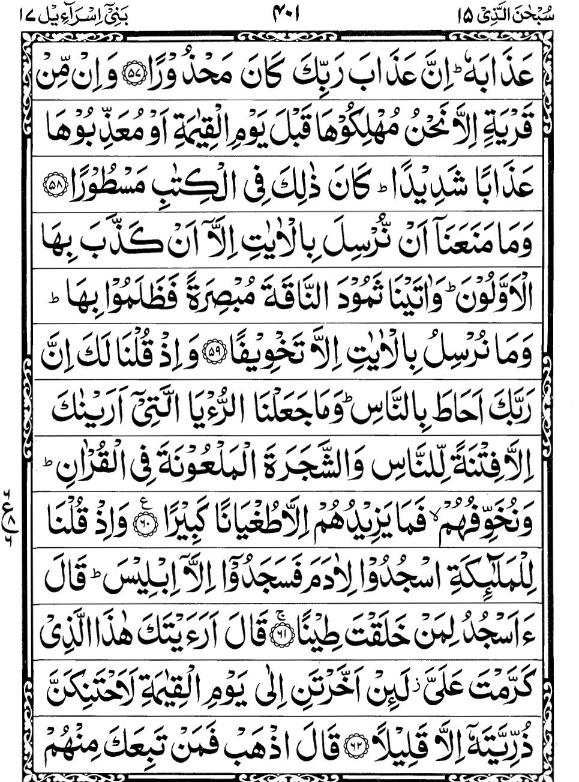 سُبْحٰنَ الَّذِیْ ۱۵ ۴۰۱ بَنِیْٓ اِسْرَآءِیْل ۱۷
عَذَابَهٗ ؕ اِنَّ عَذَابَ رَبِّكَ كَانَ مَحْذُوْرًا ﴿۵۷﴾ وَ اِنْ مِّنْ
قَرْیَةٍ اِلَّا نَحْنُ مُهْلِكُوْهَا قَبْلَ یَوْمِ الْقِیٰمَةِ اَوْ مُعَذِّبُوْهَا
عَذَابًا شَدِیْدًا ؕ كَانَ ذٰلِكَ فِی الْكِتٰبِ مَسْطُوْرًا ﴿۵۸﴾
وَ مَا مَنَعَنَاۤ اَنْ نُّرْسِلَ بِالْاٰیٰتِ اِلَّاۤ اَنْ كَذَّبَ بِهَا
الْاَوَّلُوْنَ ؕ وَ اٰتَیْنَا ثَمُوْدَ النَّاقَةَ مُبْصِرَةً فَظَلَمُوْا بِهَا ؕ
وَ مَا نُرْسِلُ بِالْاٰیٰتِ اِلَّا تَخْوِیْفًا ﴿۵۹﴾ وَ اِذْ قُلْنَا لَكَ اِنَّ
رَبَّكَ اَحَاطَ بِالنَّاسِ ؕ وَ مَا جَعَلْنَا الرُّءْیَا الَّتِیْۤ اَرَیْنٰكَ
اِلَّا فِتْنَةً لِّلنَّاسِ وَ الشَّجَرَةَ الْمَلْعُوْنَةَ فِی الْقُرْاٰنِ ؕ
وَ نُخَوِّفُهُمْ ۙ فَمَا یَزِیْدُهُمْ اِلَّا طُغْیَانًا كَبِیْرًا ﴿۶۰﴾ ع وَ اِذْ قُلْنَا
لِلْمَلٰٓىِٕكَةِ اسْجُدُوْا لِاٰدَمَ فَسَجَدُوْۤا اِلَّاۤ اِبْلِیْسَ ؕ قَالَ
ءَاَسْجُدُ لِمَنْ خَلَقْتَ طِیْنًا ﴿۶۱﴾ ۚ قَالَ اَرَءَیْتَكَ هٰذَا الَّذِیْ
كَرَّمْتَ عَلَیَّ ؗ لَىِٕنْ اَخَّرْتَنِ اِلٰی یَوْمِ الْقِیٰمَةِ لَاَحْتَنِكَنَّ
ذُرِّیَّتَهٗۤ اِلَّا قَلِیْلًا ﴿۶۲﴾ قَالَ اذْهَبْ فَمَنْ تَبِعَكَ مِنْهُمْ